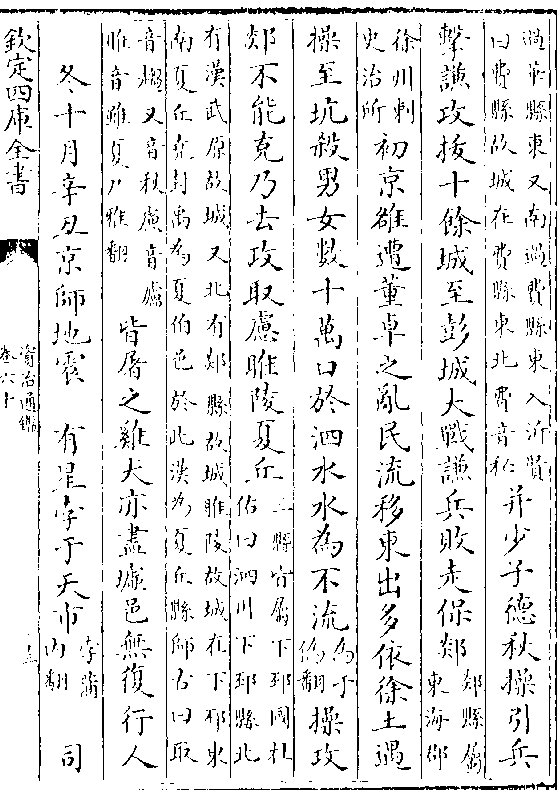 過華縣東又南過費縣東入沂賢
曰費縣故城在費縣東北費音祕
并少子德秋操引兵
擊謙攻拔十餘城至彭城大戰謙兵敗走保郯
郯縣屬
東海郡
徐州刺
史治所
初京雒遭董卓之亂民流移東出多依徐土遇
操至坑殺男女數十萬口於泗水水為不流
為于
偽翻
操攻
郯不能克乃去攻取慮睢陵夏丘
三縣皆屬下邳國杜
佑曰泗川下邳縣北
有漢武原故城又北有郯縣故城睢陵故城在下邳東
南夏丘堯封禹為夏伯邑於此漢為夏丘縣師古曰取
音趨又音秋慮音廬
睢音雖夏戶雅翻
皆屠之雞犬亦盡墟邑無復行人
冬十月辛丑京師地震　有星孛于天市
孛蒲
內翻
司
欽定四庫全書
資治通鑑
卷六十